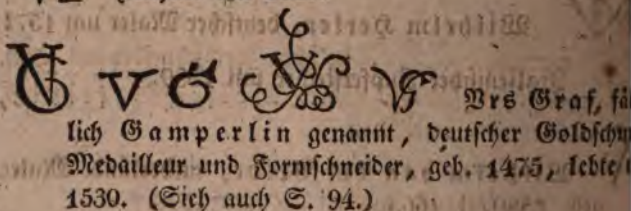 V G Vrs Graf,
lich Gamperlin genannt, deutscher
Medailleur und Formschneider, geb. 1475, lebte
1530. (Sieh auch S. 94.)